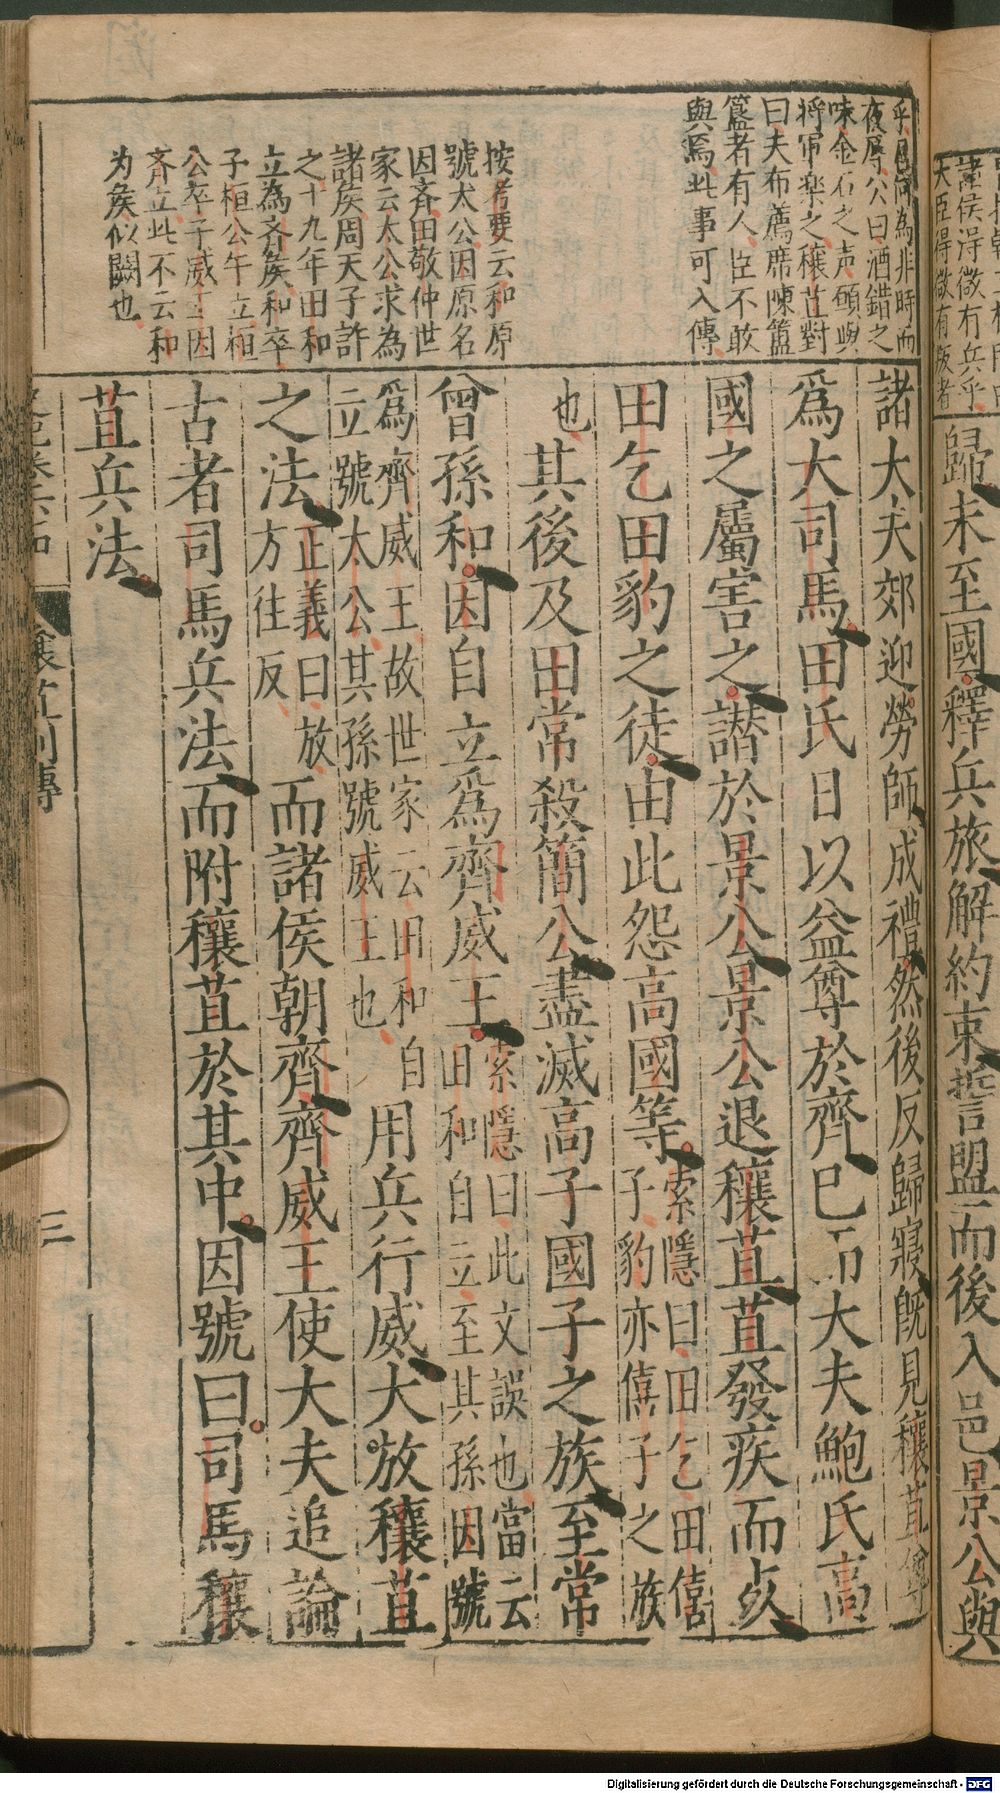 夜辱公曰酒醴之
味金石之声願與
將軍楽之穰苴對
曰夫布薦席陳簠
簋者有人臣不敢
與焉此事可入傳
按考要云和原
號太公因原名
因齐田敬仲世
家云太公求為
諸矦周天子許
之十九年田和
立為齐矦和卒
子桓公午立桓
公卒子威王因
齐立此不云和
为矦似闕也
歸未至國釋兵旅解約束誓盟而後入邑景公與
諸大夫郊迎勞師成禮然後反歸寢旣見穰苴尊
爲大司馬田氏日以益尊於齊已而大夫鮑氏高
國之屬害之譖於景公景公退穰苴苴發疾而死
田乞田豹之徒由此怨高國等索隱曰田乞田僖
子豹亦僖子之族
也其後及田常殺簡公盡滅高子國子之族至常
曾孫和因自立爲齊威王索隱曰此文誤也當云
田和自立至其孫因號
爲齊威王故世家云田和自
立號太公其孫號威王也用兵行威大放穰苴
之法正義曰放
方往反而諸侯朝齊齊威王使大夫追論
古者司馬兵法而附穰苴於其中因號曰司馬穰
苴兵法
三
Digitalisierung gefördert durch die Deutsche Forschungsgemeinschaft - DFG